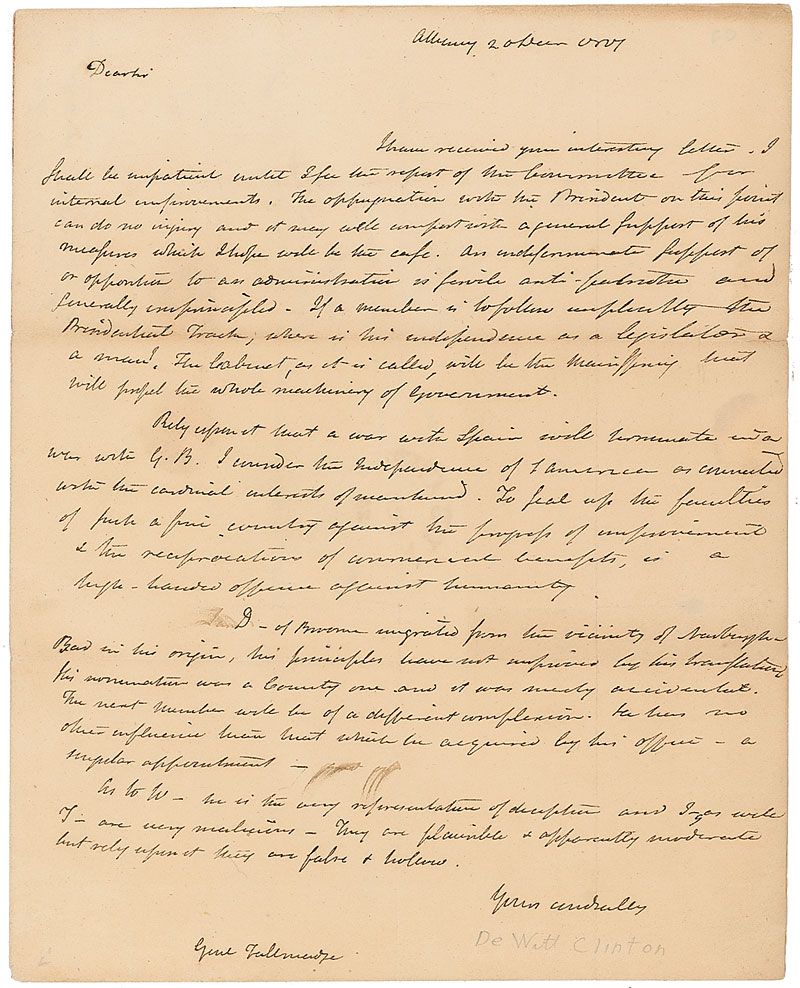 Albany 20 Decem 1817
Dear Sir
I have received your interesting letter. I
shall be impatient until I see the report of the Committee for
internal improvements. The oppugnation with the President on this point
can do no injury and it may well comport with a general support of his
measures which I hope will be the case. An indeterminate support of
or opposition to an administration is servile anti-patriotic and
generally unprincipled - If a member is to follow implicitly the
Presidential Track, where is his independence as a legislator &
a man? The Cabinet, as it is called, will be the Main spring that
will propel the whole machinery of Government.
Rely upon it that a war with Spain will terminate in a
war with G. B. I consider the Independence of S America as connected
with the cardinal interests of mankind. To seal up the faculties
of such a fine country against the progress of improvement
& the reciprocations of commercial benefits, is a
high-handed offence against humanity
D - of Broome migrated from the vicinity of Newburgh
Bad in his origin, his principles have not improved by his translation
His nomination was a County one and it was merely accidental.
The next Member will be of a different complexion. He has no
other influence than that which he acquired by his office - a
singular appointment -
As to W - he is the very representative of deception and I- as well
T - are very malicious - They are plausible & apparently moderate
but rely upon it they are false & hollow.
Yours cordially
De Witt Clinton
Genl Tallmadge